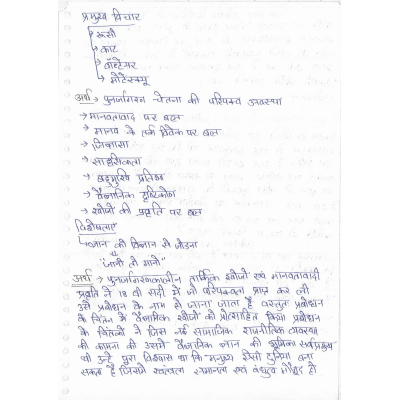 प्रमुख विचार
रूसो
कांट
वॉल्टेयर
मॉटेस्क्यू
अर्थ → पुनर्जागरण चेतना की परिपक्व अवस्था
→ मानवतावाद पर बल
→ मानव के तर्क विवेक पर बल
→ जिज्ञासा
→ साहसिकता
→ बहुमुखी प्रतिभा
→ वैज्ञानिक दृष्टिकोण
→ खोजों की प्रवृति पर बल
विशेषताएं
→ ज्ञान को विज्ञान से जोड़ना
"जानो तो मानो"
अर्थ → पुनर्जागरणकालीन तार्किक खोजों एवं मानवतावादी
प्रवृति ने 18 वी सदी में जो परिपक्वता प्राप्त कर ली
उसे प्रबोधन के नाम से जाना जाता है वस्तुतः प्रबोधन
के चिंतन ने वैज्ञानिक खोजों को प्रोत्साहित किया प्रबोधन
के चिंतकों ने जिस नई सामाजिक राजनीतिक व्यवस्था
की कामना की उसमें वैज्ञानिक ज्ञान की भूमिका सर्वप्रमुख
थी उन्हें पूरा विश्वास था कि मनुष्य ऐसी दुनिया बना
सकता है जिसमें स्वतंत्रता समानता एवं बंधुत्व मौजूद हो